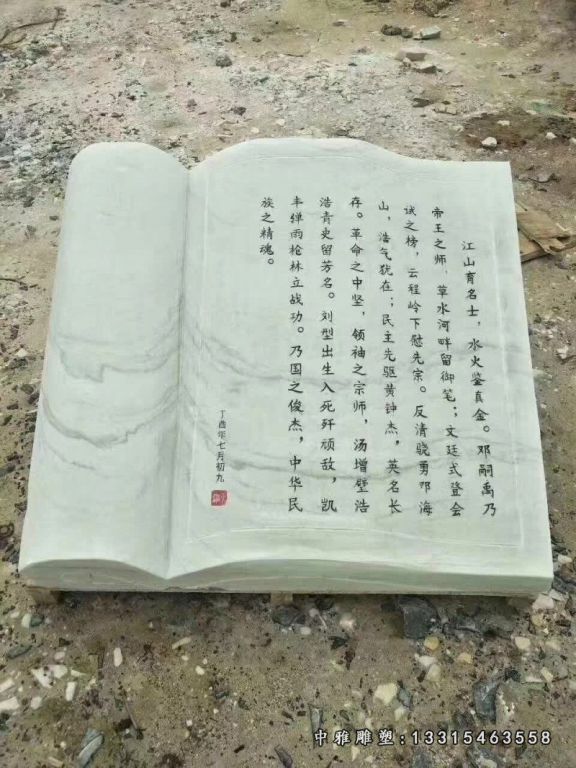 江山育名士，水火鉴真金。邓嗣禹乃
帝王之师，草水河畔留御笔；文廷式登会
试之榜，云程岭下慰先宗。反清骁勇邓海
山，浩气犹在；民主先驱黄钟杰，英名长
存。革命之中坚，领袖之宗师，汤增璧浩
浩青史留芳名。刘型出生入死歼顽敌，凯
丰弹雨枪林立战功。乃国之俊杰，中华民
族之精魂。
丁酉年七月初九
中雅雕塑:13315463558